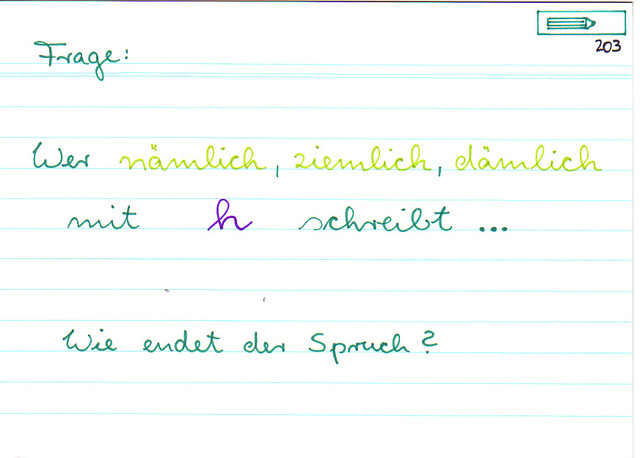 203
Frage:
Wer nämlich, ziemlich, dämlich
mit h schreibt ...
Wie endet der Spruch?